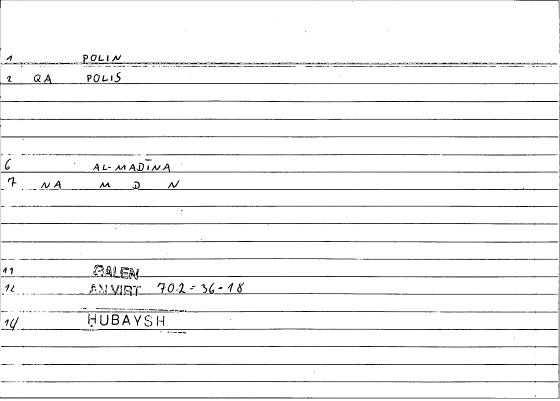 1 POLIN
2 QA POLIS
6 AL-MADĪNA
7 NA M D N
11 GALEN
12 AN VIRT 70.2 = 36-18
14 ḤUBAYSH